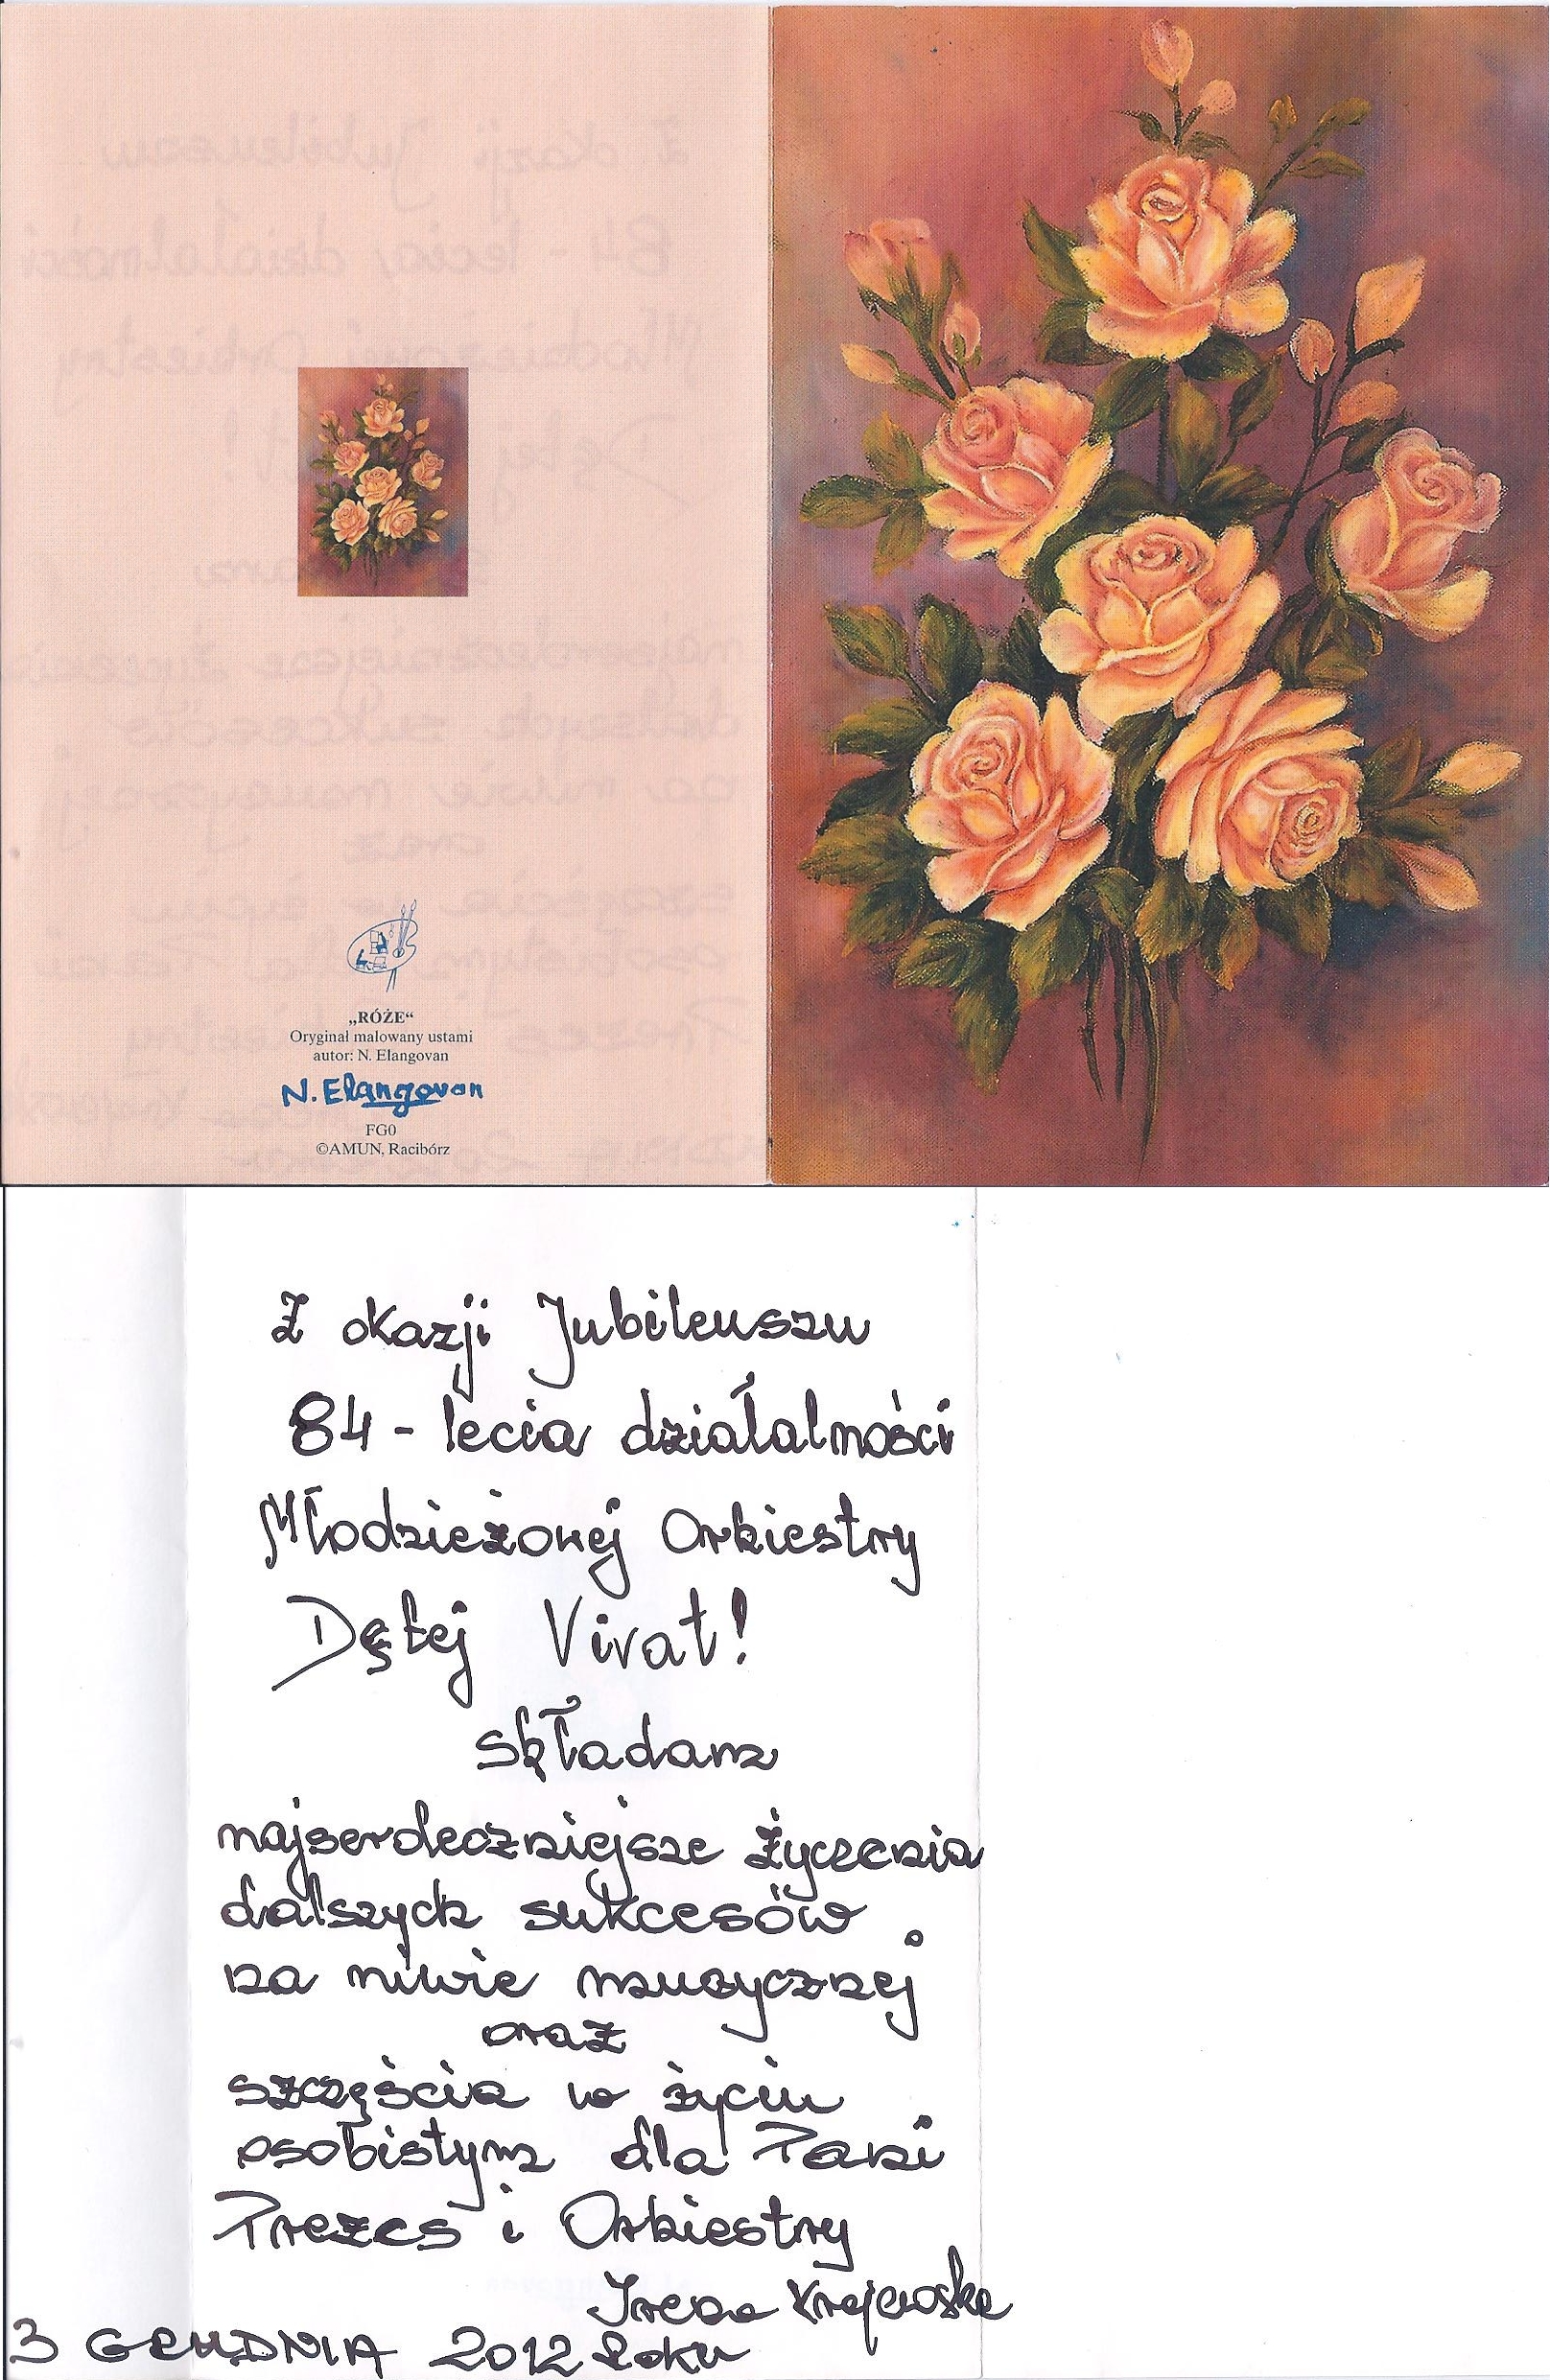 „RÓŻE“
Oryginał malowany ustami
autor: N. Elangovan
N. Elangovan
FG0
©AMUN, Racibórz
Z okazji Jubileuszu
84 - lecia działalności
Młodzieżowej Orkiestry
Dętej Vivat!
składam
najserdeczniejsze życzenia
dalszych sukcesów
na niwie muzycznej
oraz
szczęścia w życiu
osobistym dla Pani
Prezes i Orkiestry
Irena Krajewska
3 GRUDNIA 2012 Roku